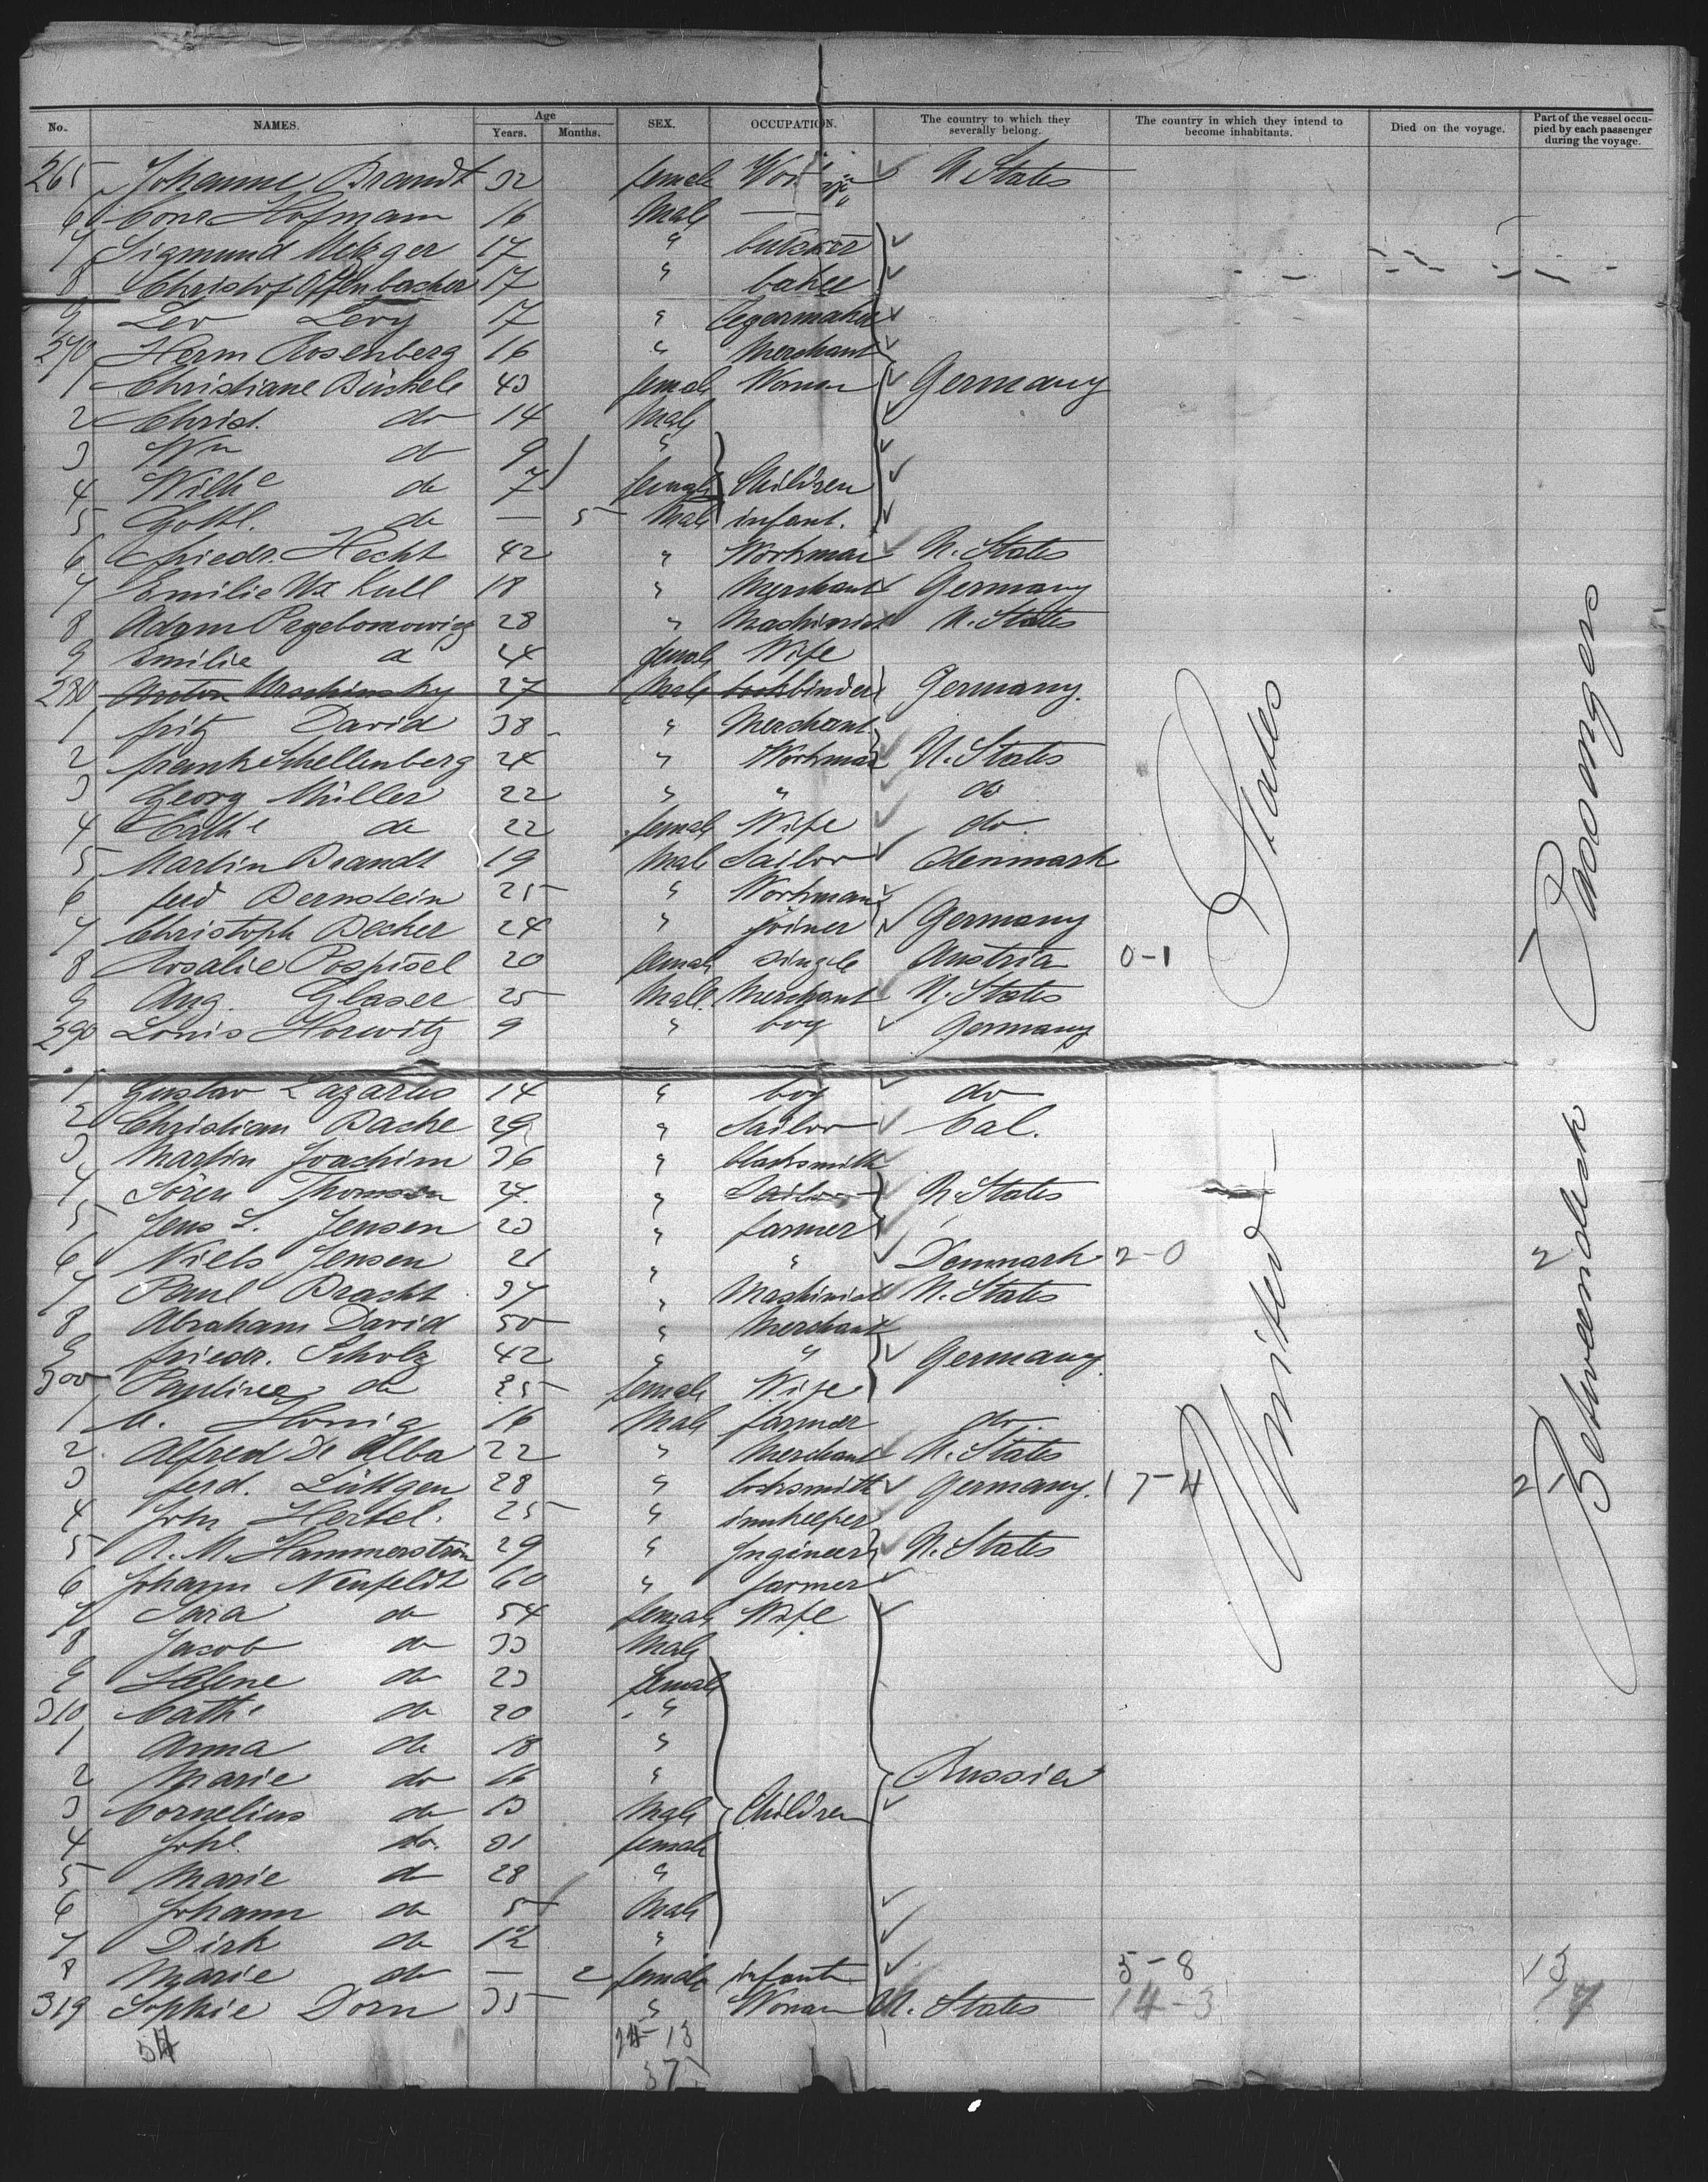 No. NAMES. Age Years. Months. SEX. OCCUPATION. The country to which they severally belong. The country in which they intend to become inhabitants. Died on the voyage. Part of the vessel occupied by each passenger during the voyage.
265 Johanne Brandt 32 female U States
6 Conr Hofmann 16 Male —
7 Sigmund Metzger 17 " butcher
8 Christof Offenbacher 17 " baker
9 Leo Levy 17 " Cegarmaker
270 Herm Rosenberg 16 " Merchant
1 Christiane Büschele 43 female Woman Germany
2 Christ. do 14 Male
3 Wm do 9 "
4 Wilhe do 7 female Children
5 Gottl. do — 5 Male infant.
6 Friedr. Hecht 42 " Workman U. States
7 Emilie Kull 18 " Merchant Germany
8 Adam Przebomowicz 28 " Machinist U. States
9 Emilie d 24 female Wife
280 Anton Urschinsky 27 Male bookbinder Germany.
1 Fritz David 38 " Merchant
2 Frank Schellenberg 24 " Workman U. States
3 Georg Müller 22 " " do
4 Cathe do 22 female Wife do.
5 Martin Brandt 19 Male Sailor Denmark
6 Ferd Bernstein 25 " Workman
7 Christoph Becker 24 " joiner Germany
8 Rosalie Pospisel 20 female single Austria 0-1
9 Aug. Glaser 25 Male Merchant U. States
290 Louis Horwitz 9 " boy Germany
1 Gustav Lazarus 14 " boy do
2 Christian Bache 29 " Sailor Cal.
3 Martin Joachim 36 " blacksmith
4 Sören Thomsen 27 " Sailor U. States
5 Jens L. Jensen 23 " farmer
6 Niels Jensen 21 " " Denmark 2-0 2
7 Paul Bracht 37 " Machinist U. States
8 Abraham David 50 " Merchant
9 Friedr. Scholz 42 " " Germany
300 Pauline do 35 female Wife
1 Honig 16 Male farmer do.
2 Alfred De Alba 22 " Merchant U. States
3 Ferd. Lüttgen 28 " locksmith Germany. 17-4
4 John Hertel. 25 " innkeeper
5 A. M. Hammerström 29 " Engineer U. States
6 Johann Neufeldt 60 " farmer
7 Sara do 54 female Wife
8 Jacob do 33 Male
9 Helene do 23 female
310 Cathe do 20 "
1 Anna do 18 "
2 Marie do 16 " Russia
3 Cornelius do 13 Male Children
4 Johe. do. 31 female
5 Marie do 28 "
6 Johann do 5 Male
7 Dirk do "
8 Marie do — 2 female infant. 5-8
319 Sophie Dorn 35 " Woman U. States 14-3 7
54 24-13
37
United States
Betweendeck Passengers